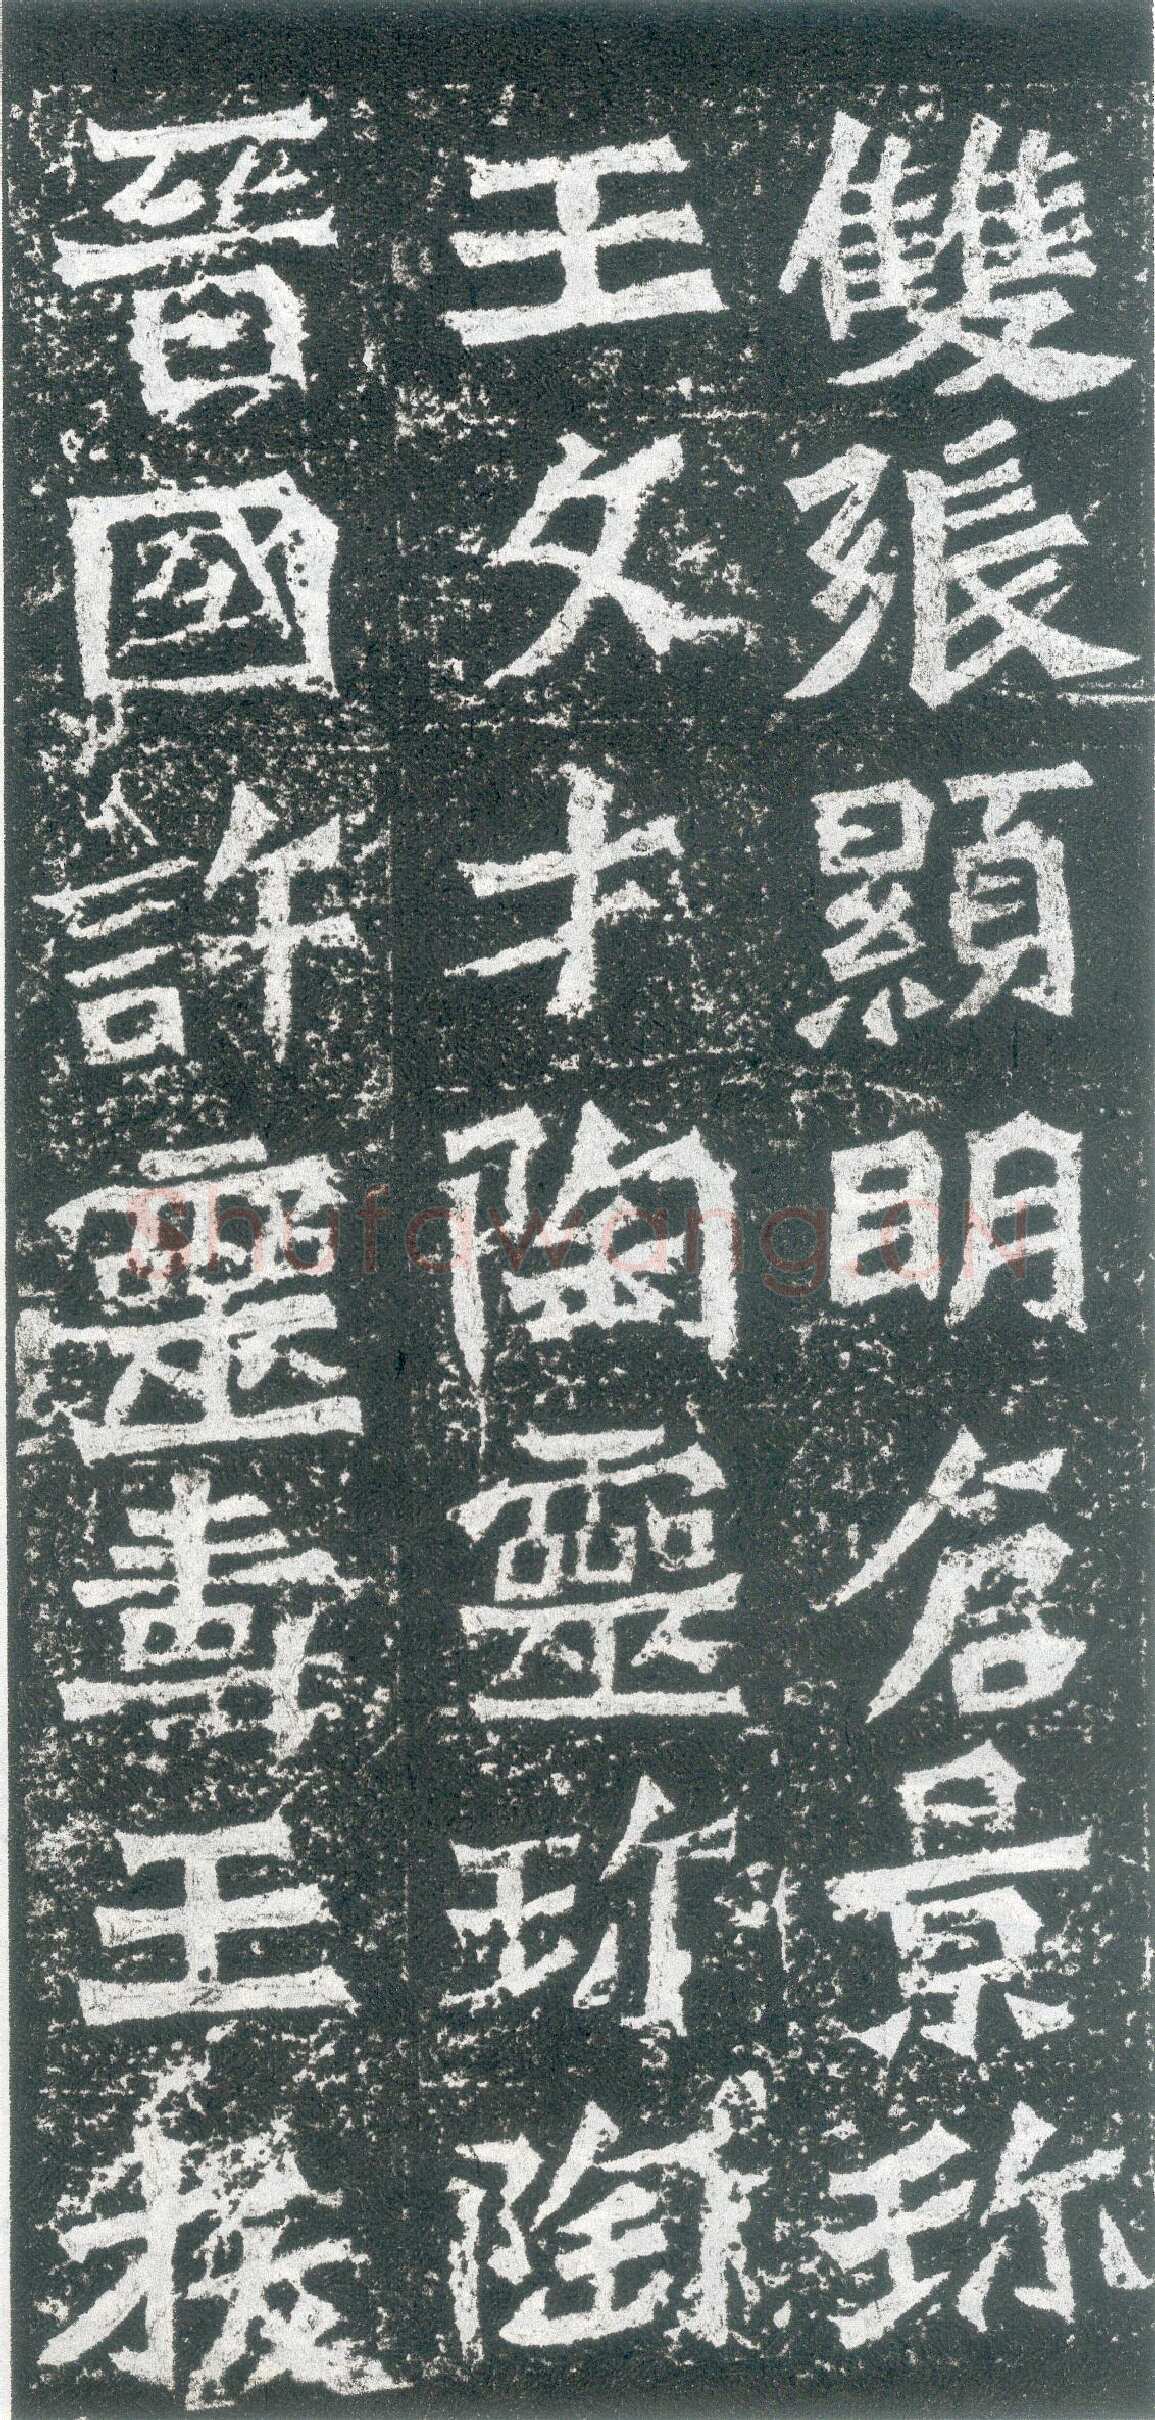 雙張顯明倉景珎
王文才陶靈珎陶
晉國許靈壽王
Shufawang.CN